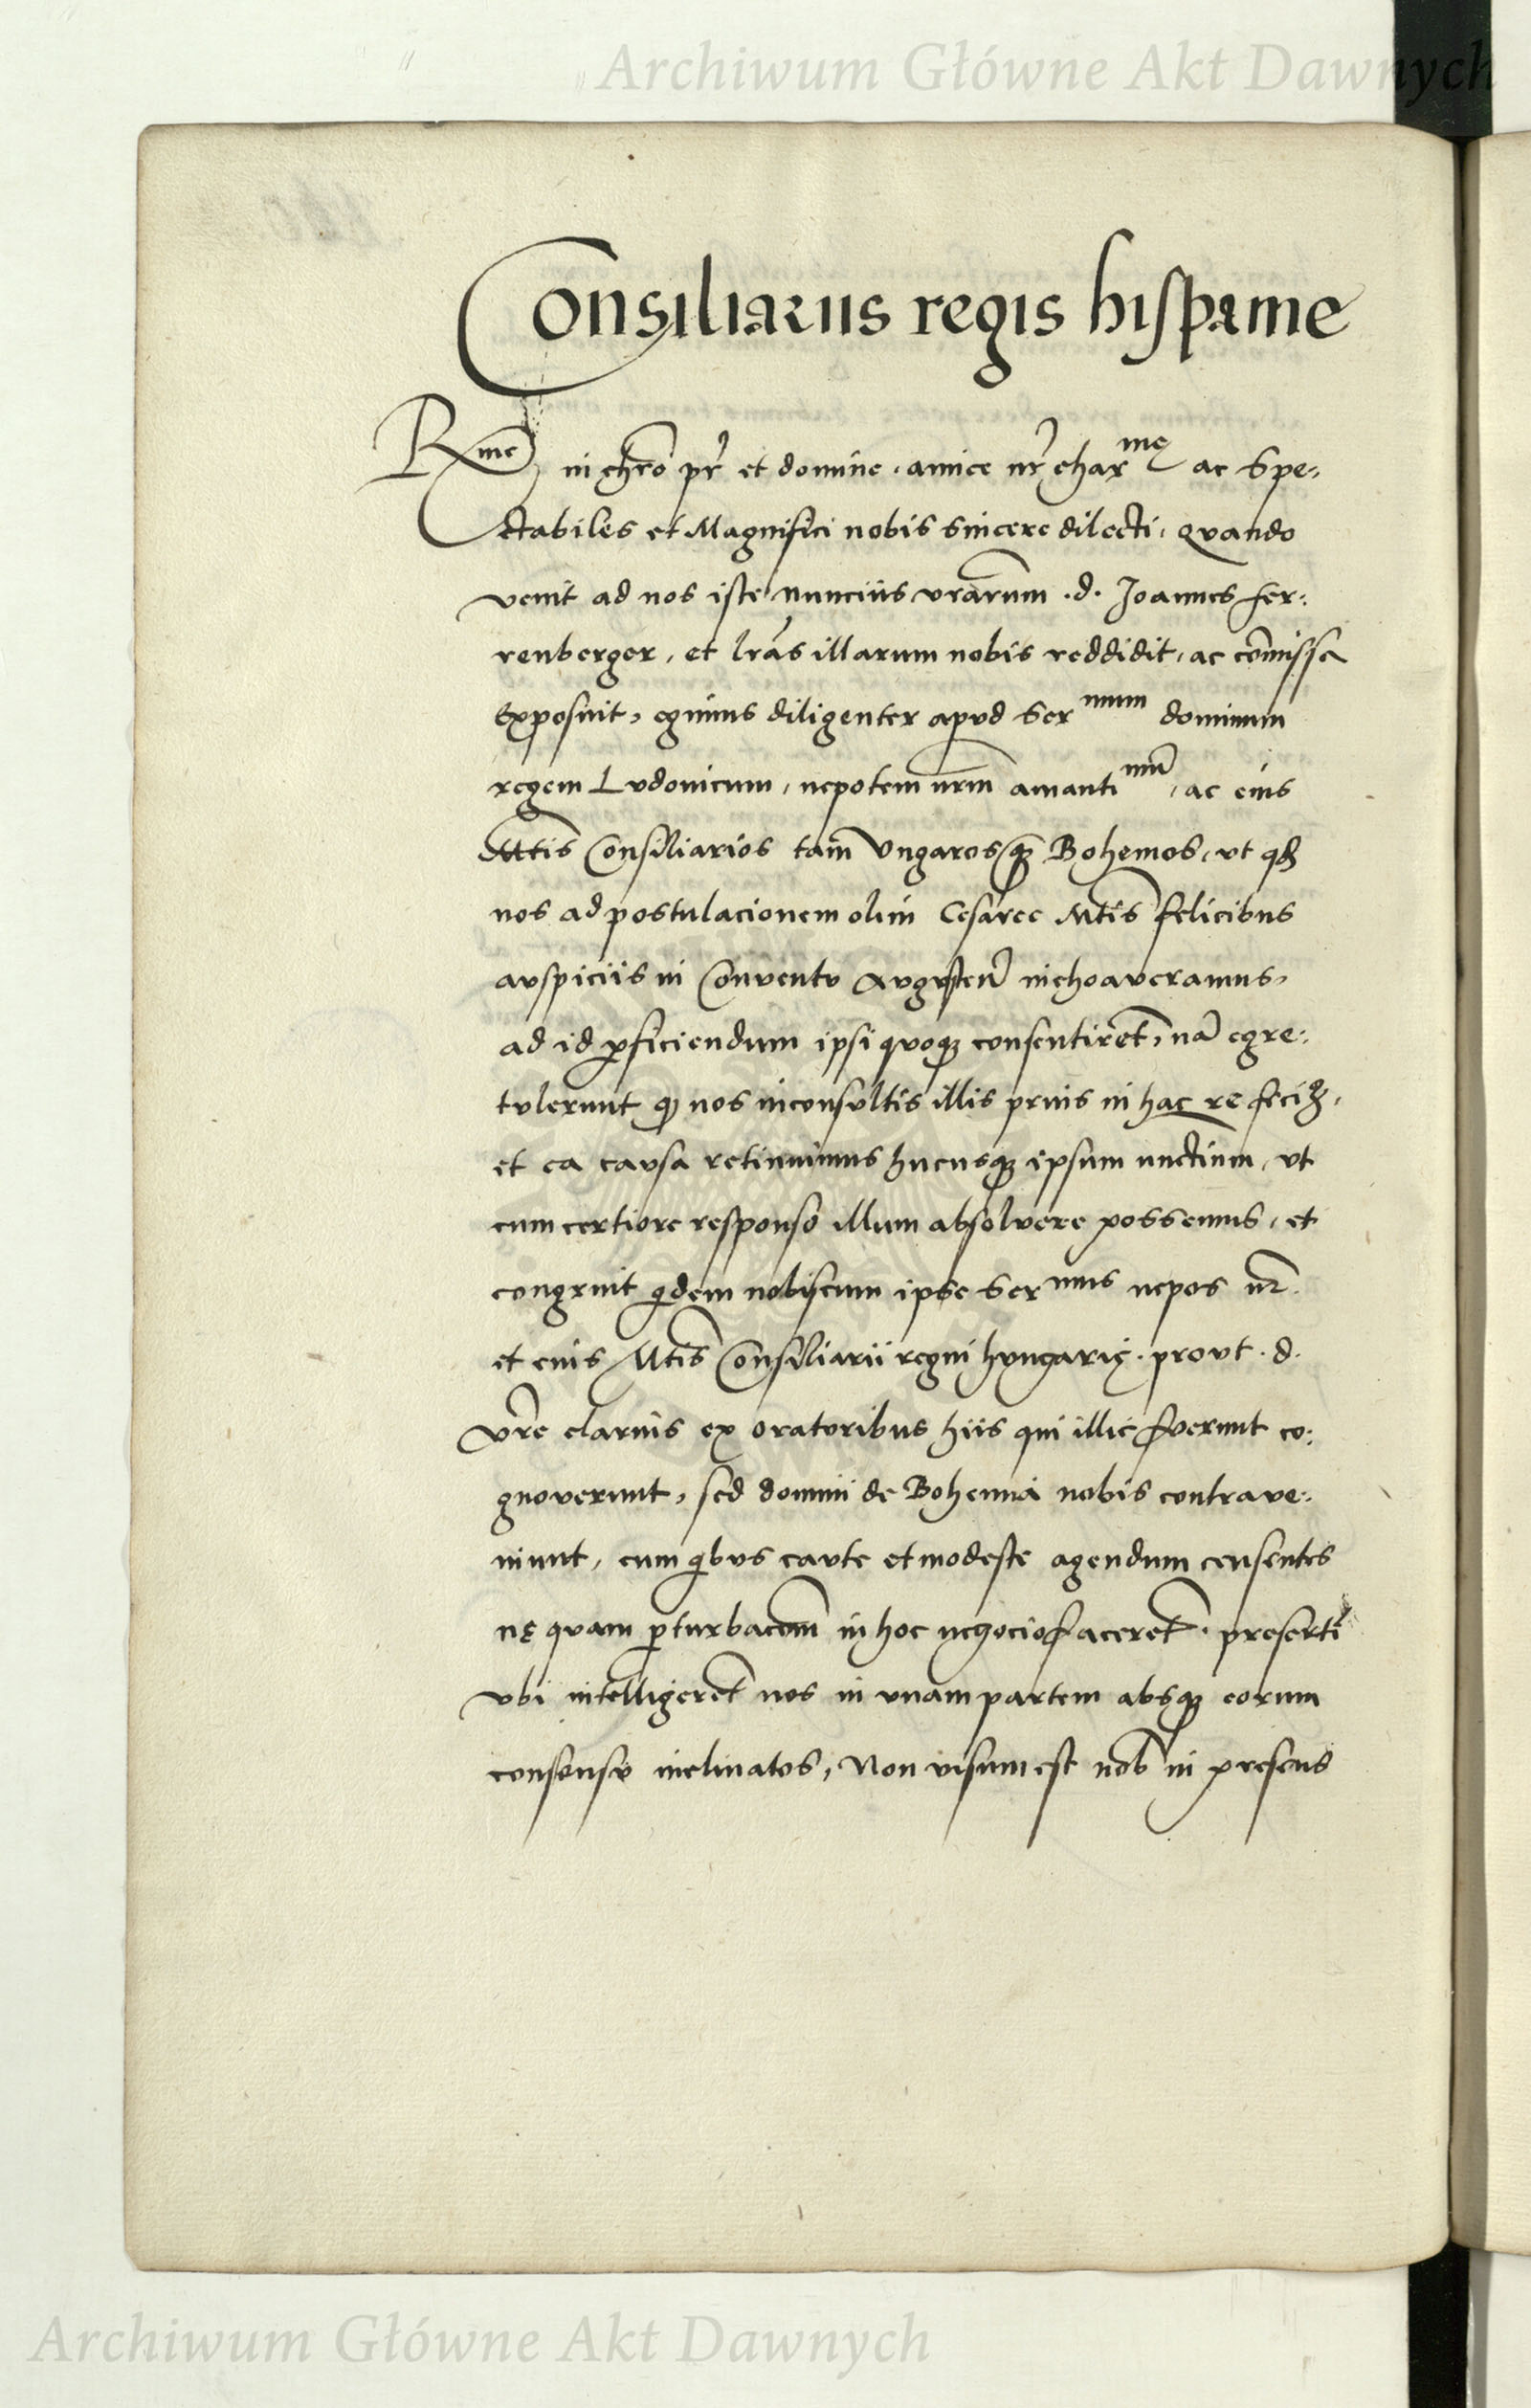 Archiwum Główne Akt Dawnych
Consiliariis regis hispanie
Rme in chro pr et domine, amice nr charme ac Spe:
ctabiles et Magnifici nobis sincere dilecti, Quando
venit ad nos iste nuncius vrarum .d. Joannes fer:
renberger, et lras illarum nobis reddidit, ac comissa
Exposuit, egimus diligenter apvd Sermum dominum
regem Lvdovicum, nepotem nrm amantimu, ac eius
Mtis Consiliarios tam Vngaros q Bohemos, vt qd
nos ad postvlacionem olim Cesaree Mtis felicibus
avspiciis in Conventv Avgvsten inchoaveramus,
ad id pficiendum ipsi qvoq consentiret, na egre:
tvlerunt q nos inconsvltis illis prius in hac re fecim,
et ea cavsa retinuimus hucusq ipsum nuctium, vt
cum certiore responso illum absolvere possemus, et
congruit qdem nobiscum ipse Sermus nepos nr.
et eius Mtis Consiliarii regni hvngarię. provt .d.
vre clarius ex oratoribus hiis qui illic fverunt co:
gnoverunt, sed domini de Bohemia nobis contrave:
niunt, cum qbvs cavte et modeste agendum censentes
nę qvam pturbacom in hoc negocio faceret. preserti
vbi intelligeret nos in vnam partem absq eorum
consensv inclinatos, Non visum est nob in presens
Archiwum Główne Akt Dawnych